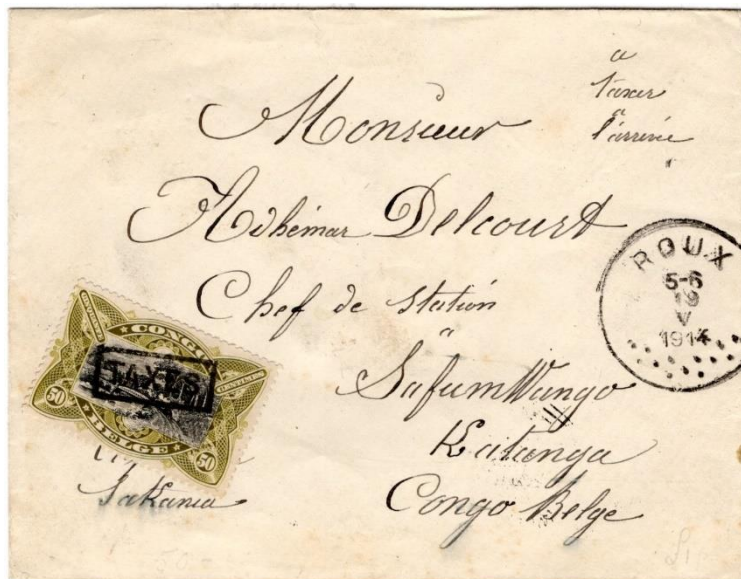 a
taxer
a
l'arrivée
Monsieur
Adhémar Delcourt
Chef de station
a
SafumWango
Katanga
Congo Belge
ROUX
5-6
19
V
1914
CONGO
BELGE
CENTIMES
50
50
TAXES
Sakania